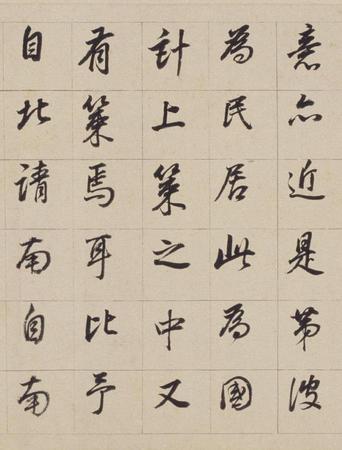 意亦近是第彼
為民居此為國
計上策之中又
有策焉耳比予
自北請南自南